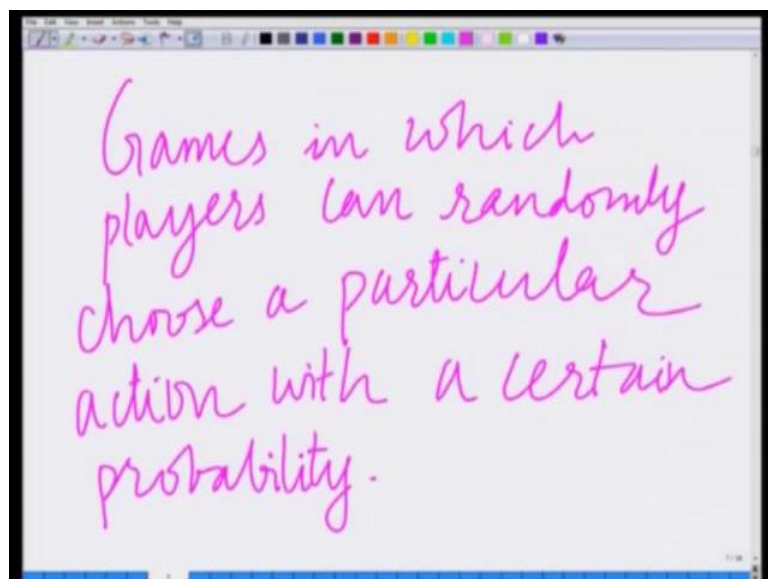 File Edit View Insert Actions Tools Help
Games in which
players can randomly
choose a particular
action with a certain
probability.